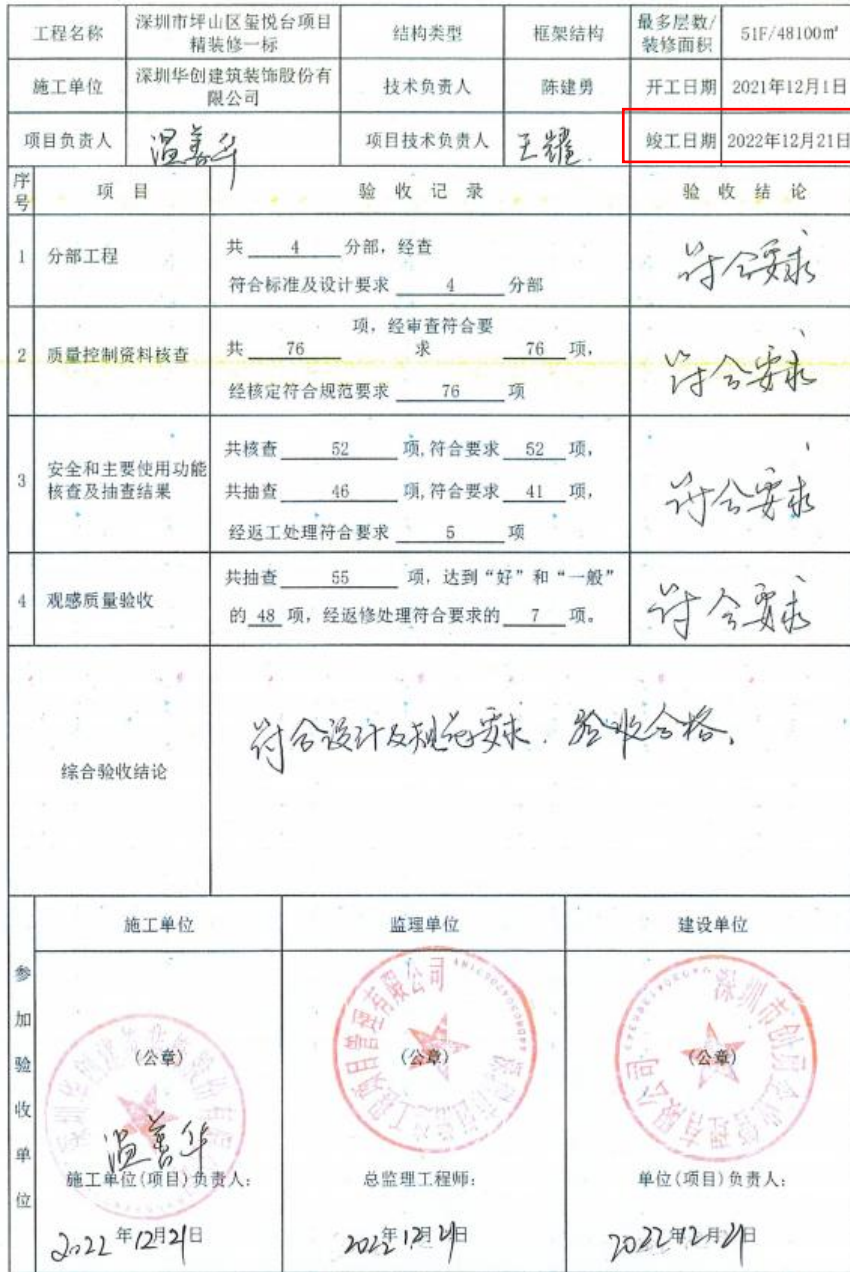 工程名称 深圳市坪山区玺悦台项目精装修一标 结构类型 框架结构 最多层数/装修面积 51F/48100㎡
施工单位 深圳华创建筑装饰股份有限公司 技术负责人 陈建勇 开工日期 2021年12月1日
项目负责人 温善华 项目技术负责人 王耀 竣工日期 2022年12月21日
序号 项 目 验 收 记 录 验 收 结 论
1 分部工程 共 4 分部，经查 符合要求
符合标准及设计要求 4 分部
2 质量控制资料核查 共 76 项，经审查符合要求 76 项， 符合要求
经核定符合规范要求 76 项
3 安全和主要使用功能核查及抽查结果 共核查 52 项,符合要求 52 项， 符合要求
共抽查 46 项,符合要求 41 项，
经返工处理符合要求 5 项
4 观感质量验收 共抽查 55 项，达到“好”和“一般” 符合要求
的 48 项，经返修处理符合要求的 7 项。
综合验收结论 符合设计及规范要求．验收合格．
参加验收单位
施工单位 监理单位 建设单位
(公章) (公章) (公章)
温善华
施工单位(项目)负责人： 总监理工程师： 单位(项目)负责人：
2022年12月21日 2022年12月21日 2022年12月21日